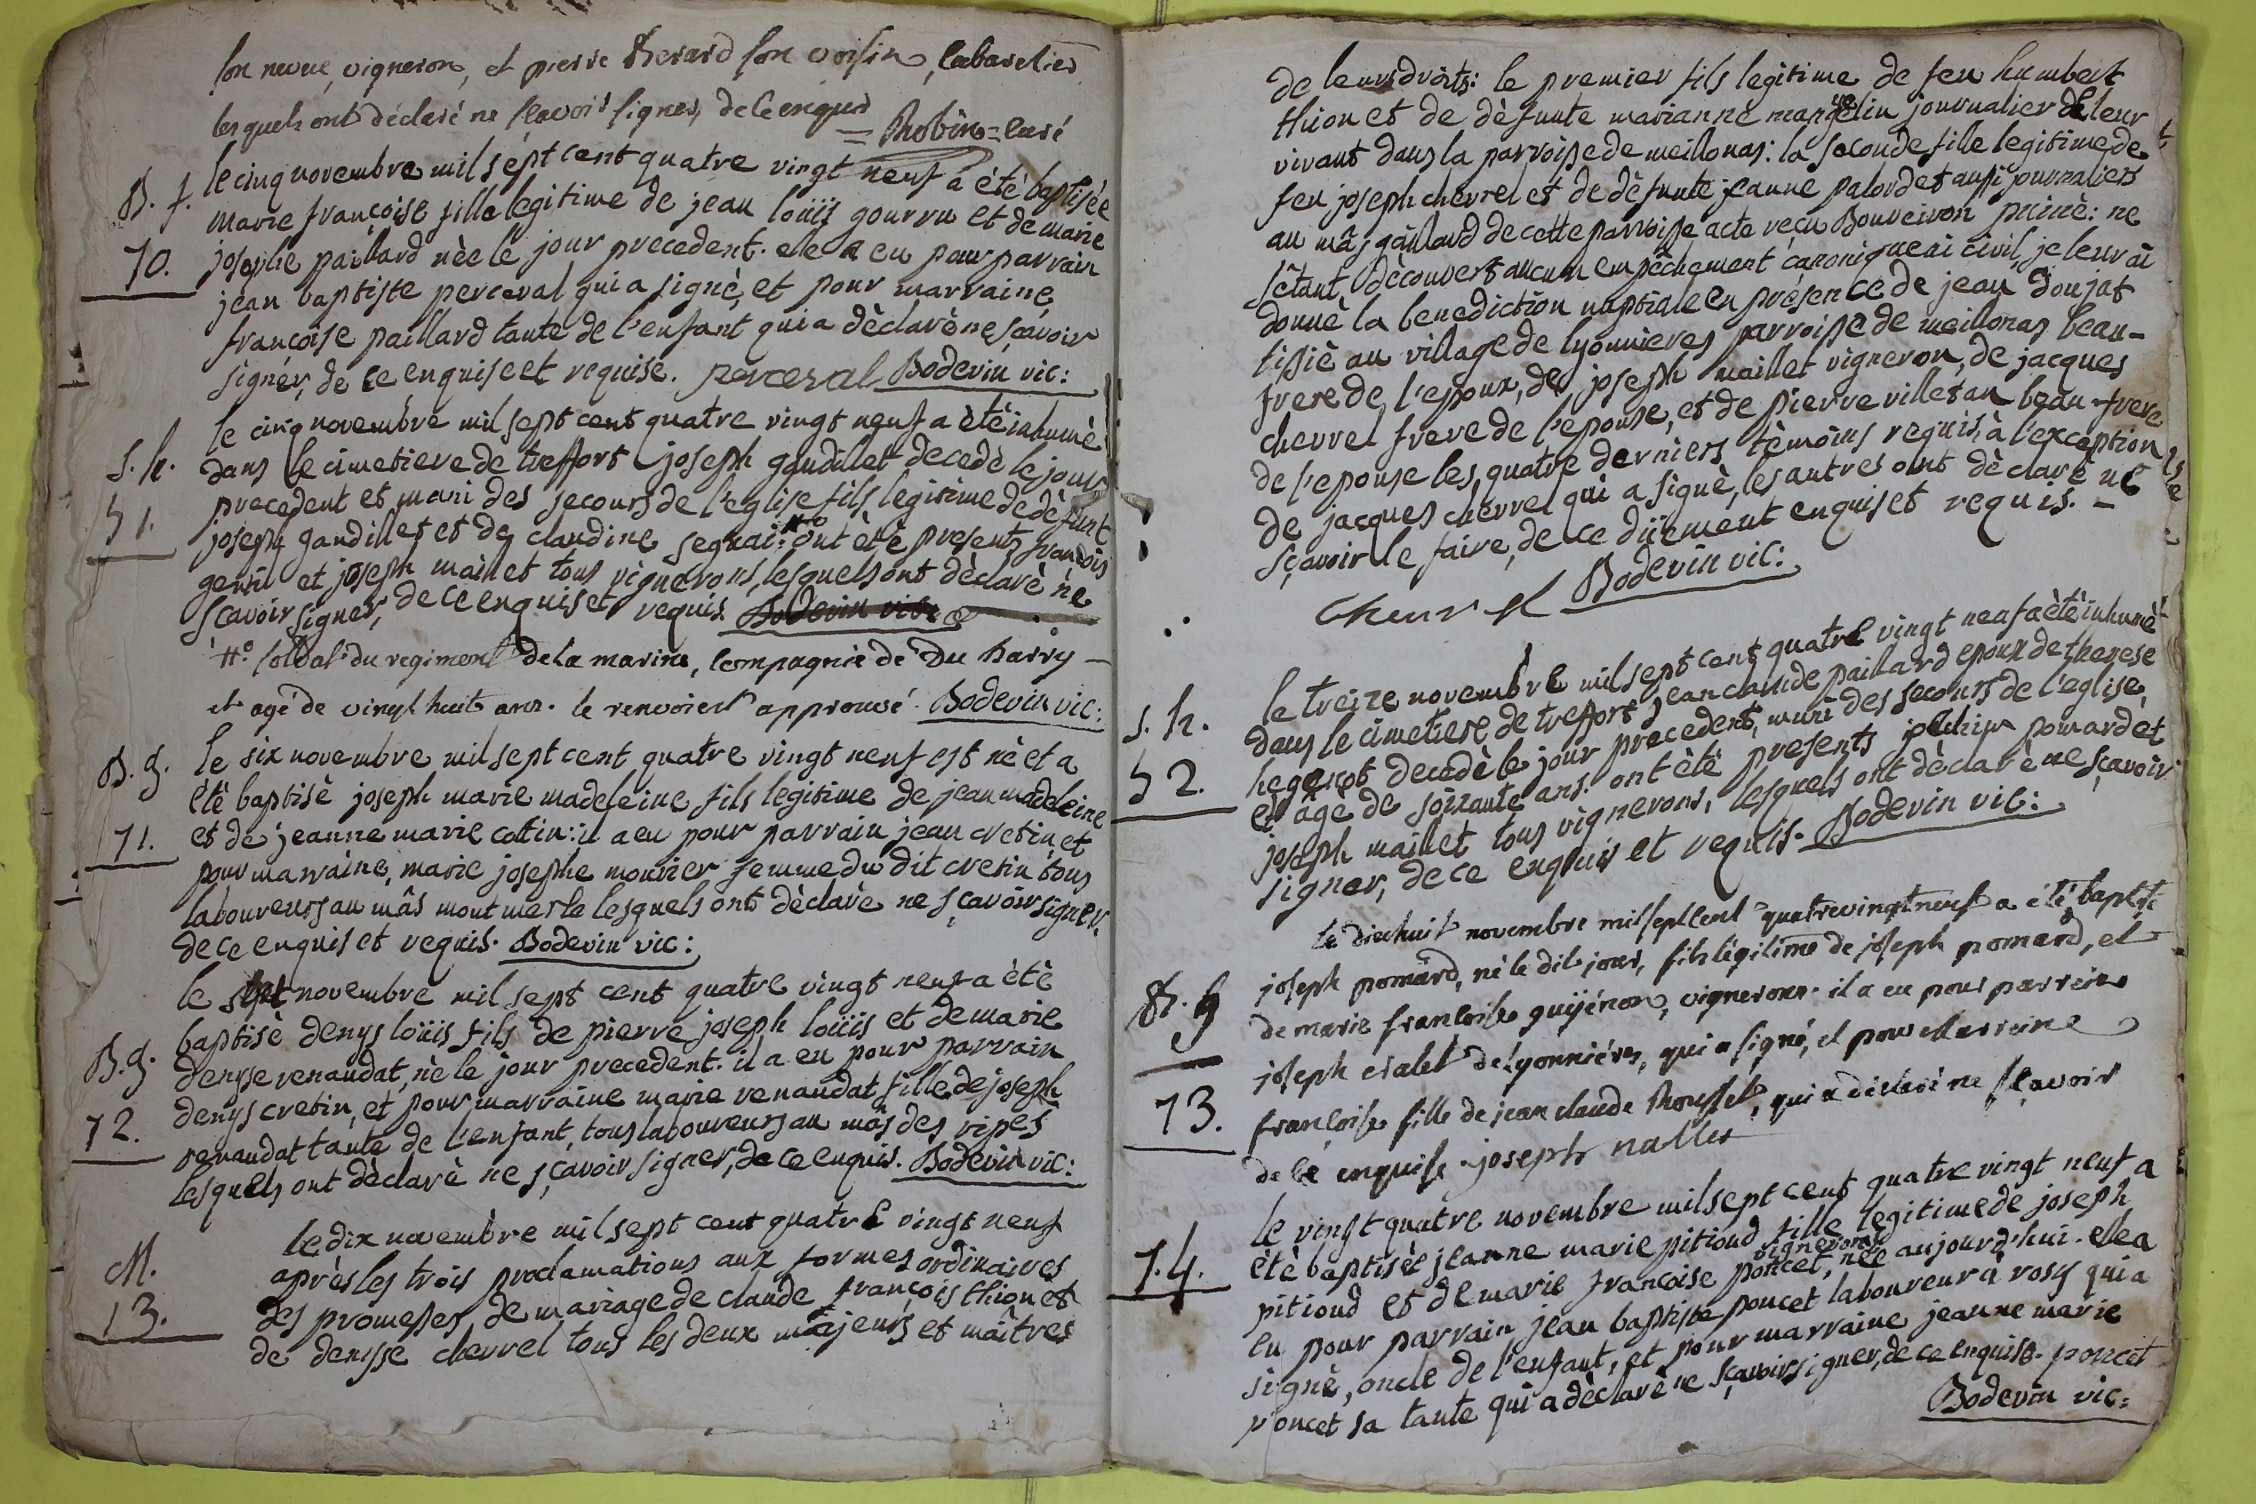 son neveu, vigneron, et pierre Herard son voisin, Cabaretier
lesquels ont déclaré ne sçavoir signer, de ce enquis
= Robin = curé
B. f.
70.
le cinq novembre mil sept cent quatre vingt neuf a été baptisée
marie françoise fille legitime de jean loüis gourru et de marie
josephe paillard née le jour precedent. elle a eu pour parrain
jean baptiste perceval qui a signè, et pour marraine
françoise paillard tante de l'enfant qui a dèclarè ne sçavoir
signer, de ce enquise et requise. perceval Bodevin vic:
S. h.
51.
le cinq novembre mil sept cent quatre vingt neuf a ètè inhumè
dans le cimetiere de treffort joseph gaudillet decedè le jour
precedent et muni des secours de l'eglise fils legitime de dèfunt
joseph gaudillet et de claudine seguai: #° ont ètè presents françois
genin et joseph maillet tous vignerons, lesquels ont dèclarè ne
sçavoir signer, de ce enquis et requis. Bodevin vic:
#° soldat du regiment de la marine, compagnie de Du harry
et agé de vingt huit ans. le renvoi est approuvé. Bodevin vic:
B. g.
71.
le six novembre mil sept cent quatre vingt neuf est nè et a
ètè baptisè joseph marie madeleine fils legitime de jean madeleine
et de jeanne marie cottin: il a eu pour parrain jean cretin et
pour marraine, marie josephe mourier femme du dit cretin tous
laboureurs au mâs mont merle lesquels ont dèclarè ne sçavoir signer.
de ce enquis et requis. Bodevin vic:
B. g.
72.
le sept novembre mil sept cent quatre vingt neuf a ètè
baptisè denys loüis fils de pierre joseph loüis et de marie
denyse renaudat, nè le jour precedent. il a eu pour parrain
denys cretin, et pour marraine marie renaudat fille de joseph
renaudat tante de l'enfant, tous laboureurs au mâs des ripes
lesquels ont dèclarè ne sçavoir signer, de ce enquis. Bodevin vic:
M.
13.
le dix novembre mil sept cent quatre vingt neuf
après les trois proclamations aux formes ordinaires
des promesses de mariage de claude françois thion et
de denisse chevrel tous les deux majeurs et maîtres
de leurs droits: le premier fils legitime de feu humbert
thion et de dèfunte marianne mangelin journalier de leur
vivant dans la parroisse de meillonas: la seconde fille legitime de
feu joseph chevrel et de dèfunte jeanne palordet aussi journaliers
au mâs gaillard de cette parroisse acte reçu Bouveiron : ne
s'étant dècouvert aucun empêchement canonique ni civil, je leur ai
donnè la benediction nuptiale en présence de jean doujat
tissiè au village de lyonnieres parroisse de meillonas beau-
frere de l'epoux, de joseph maillet vigneron, de jacques
chevrel frere de l'epouse, et de pierre villet au beau-frere
de l'epouse les quatre derniers tèmoins requis, à l'exception
de jacques chevrel qui a signè, les autres ont dèclarè ne
sçavoir le faire, de ce düement enquis et requis. -
chevrel Bodevin vic:
S. h.
52.
le treize novembre mil sept cent quatre vingt neuf a ètè inhumè
dans le cimetiere de treffort jean claude paillard epoux de therese
hegenot decedè le jour precedent, muni des secours de l'eglise,
et âgè de soixante ans. ont ètè presents pomard et
joseph maillet tous vignerons, lesquels ont dèclarè ne sçavoir
signer, de ce enquis et requis. Bodevin vic:
B. g
73.
Le dix huit novembre mil sept cent quatre vingt neuf a été baptisé
joseph pomard, né le dit jour, fils légitime de joseph pomard, et
de marie françoise guijénon, vignerons. il a eu pour parrein
joseph de lyonniéres, qui a signé, et pour Marreine
françoise fille de jean claude Rousset, qui a déclaré ne sçavoir
de ce enquise. joseph nallet
74.
le vingt quatre novembre mil sept cent quatre vingt neuf a
ètè baptisèe jeanne marie pitioud fille legitime de joseph
vignerons
pitioud et de marie françoise poncet, nèe aujourd'hui. elle a
eu pour parrain jean baptiste poncet laboureur à rosy qui a
signè, oncle de l'enfant, et pour marraine jeanne marie
poncet sa tante qui a dèclarè ne sçavoir signer, de ce enquise. poncet
Bodevin vic: